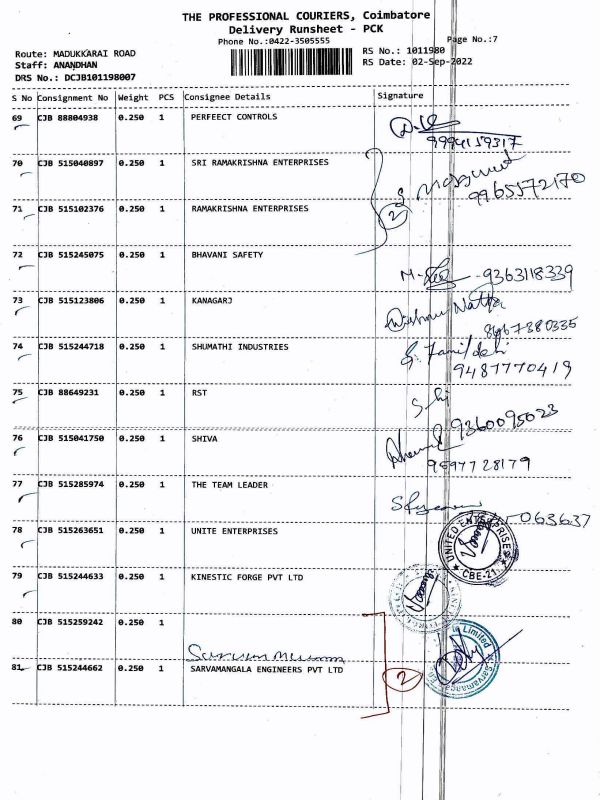 THE PROFESSIONAL COURIERS, Coimbatore
Delivery Runsheet - PCK
Phone No.:0422-3505555
Page No.:7
Route: MADUKKARAI ROAD
RS No.: 1011980
Staff: ANANDHAN
RS Date: 02-Sep-2022
DRS No.: DCJB101198007
S No Consignment No Weight PCS Consignee Details Signature
69 CJB 88804938 0.250 1 PERFEECT CONTROLS
9994159317
70 CJB 515040897 0.250 1 SRI RAMAKRISHNA ENTERPRISES
9965572170
71 CJB 515102376 0.250 1 RAMAKRISHNA ENTERPRISES
2
72 CJB 515245075 0.250 1 BHAVANI SAFETY
9363118339
73 CJB 515123806 0.250 1 KANAGARJ
74 CJB 515244718 0.250 1 SHUMATHI INDUSTRIES
9487770419
75 CJB 88649231 0.250 1 RST
9360095023
76 CJB 515041750 0.250 1 SHIVA
9597728179
77 CJB 515285974 0.250 1 THE TEAM LEADER
063637
78 CJB 515263651 0.250 1 UNITE ENTERPRISES
UNITED ENTERPRISES
CBE-21
79 CJB 515244633 0.250 1 KINESTIC FORGE PVT LTD
80 CJB 515259242 0.250 1
81 CJB 515244662 0.250 1 SARVAMANGALA ENGINEERS PVT LTD
2